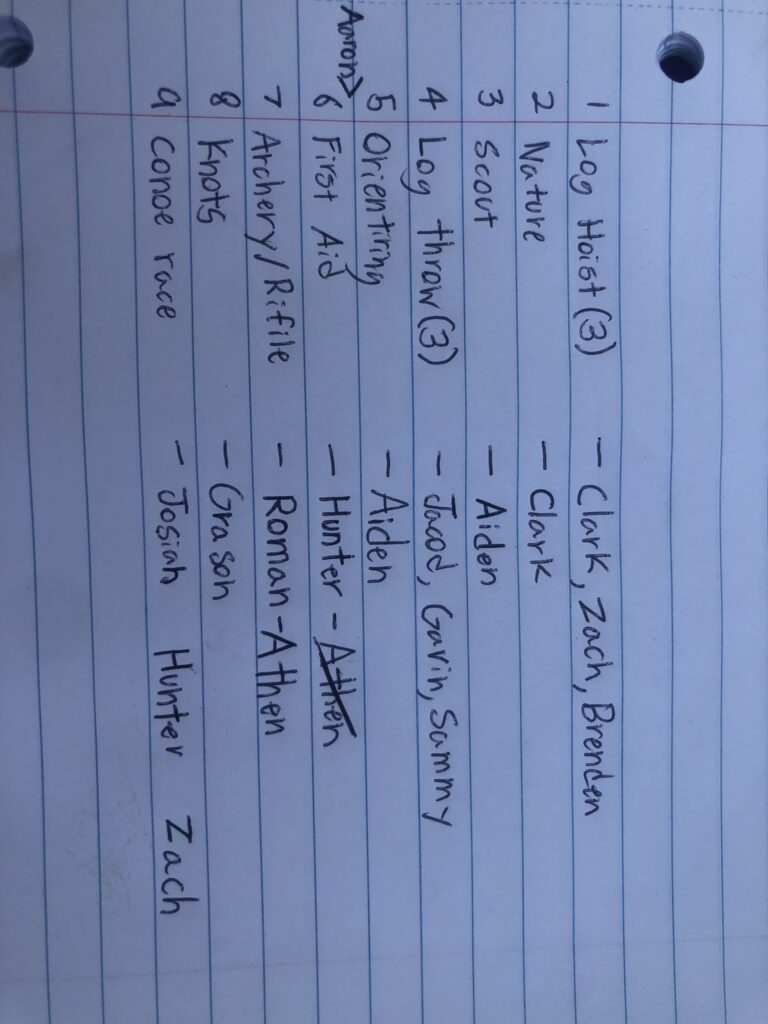 1 Log Hoist (3) - Clark, Zach, Brenden
2 Nature - Clark
3 Scout - Aiden
4 Log throw (3) - Jacod, Gavin, Sammy
5 Orientiring - Aiden
Aaron>
6 First Aid - Hunter - Athen
7 Archery/Rifile - Roman-Athen
8 Knots - Grason
9 Conoe race - Josiah Hunter Zach